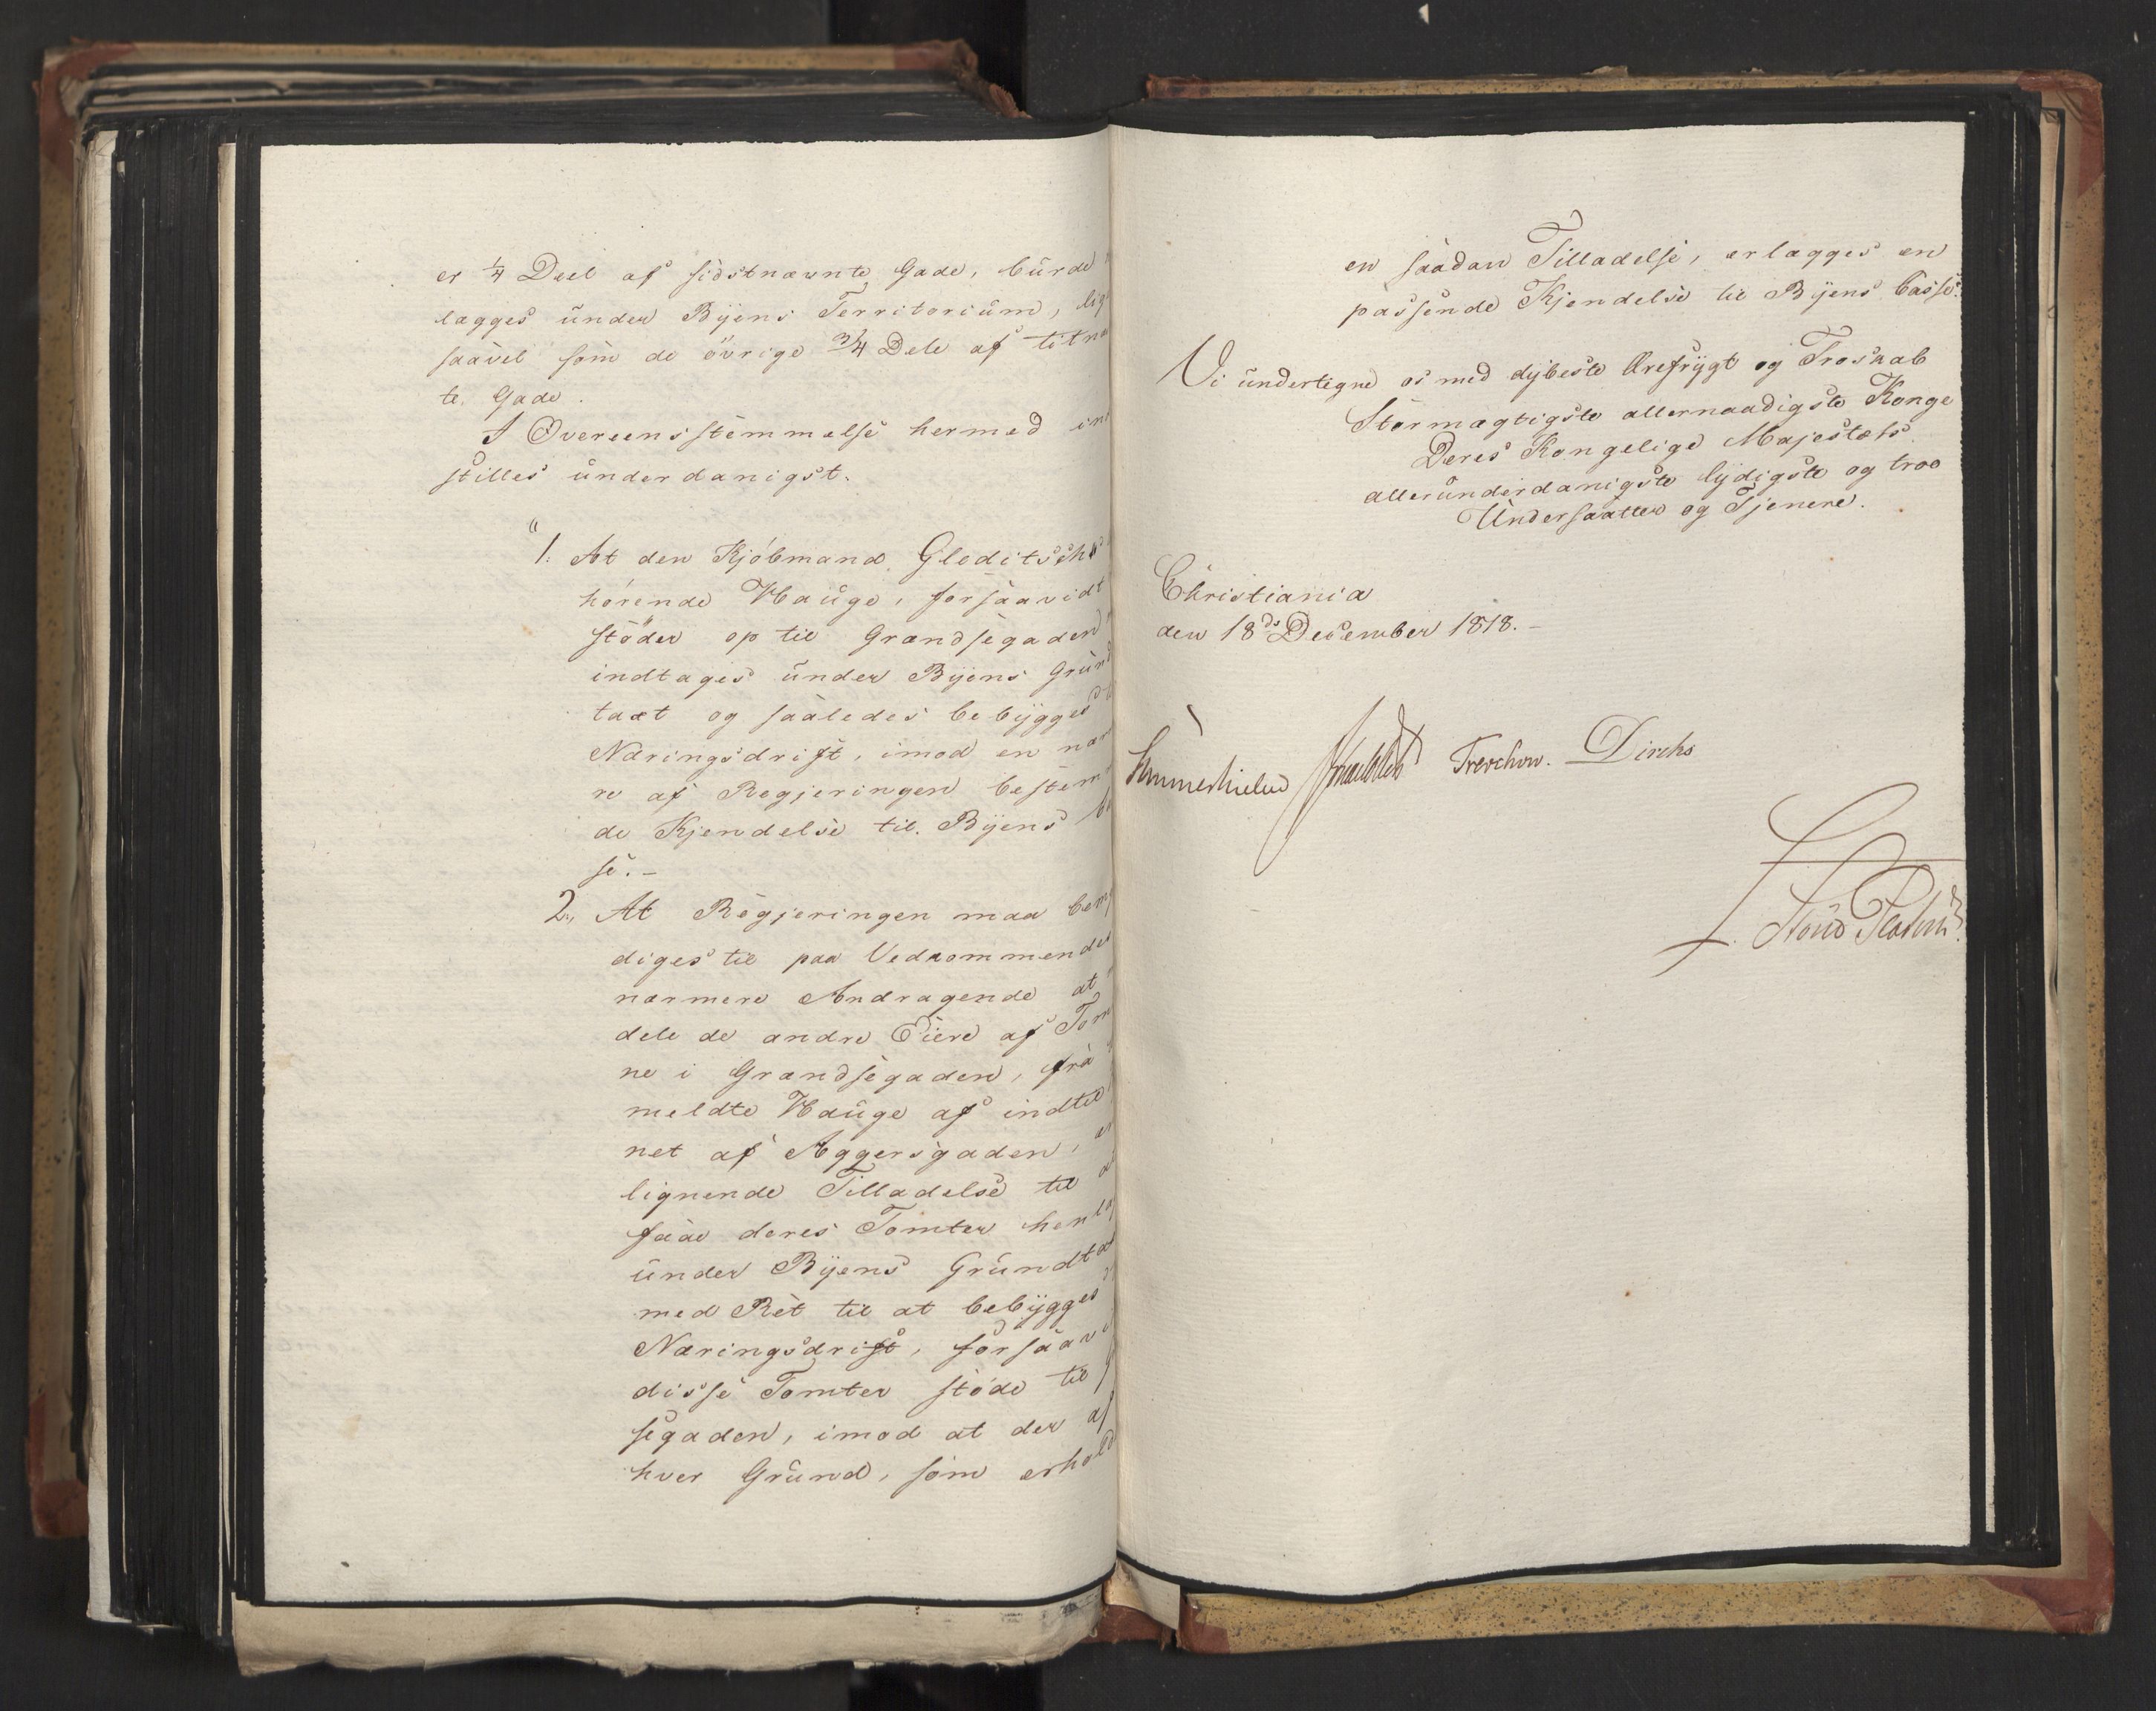 er 1/4 Deel af sidstnævnte Gade, burde
lægges under Byens Territorium, lige
saavel som de øvrige 3/4 Dele af titnæ
te Gade.
I Overeensstemmelse hermed ind
stilles underdanigst.
"1. At den Kjøbmand Gleditsch
hørende Hauge, forsaavidt
støder op til Grændsegaden
indtages under Byens Grund
taxt og saaledes bebygges
Næringsdrift, imod en nær
re af Regjeringen bestem
de Kjendelse til Byens
se.-
2., At Regjeringen maa bemyn
diges til paa Vedkommendes
nærmere Andragende at
dele de andre Eiere af Tom
ne i Grændsegaden, fra
meldte Hauge af indtil
net af Aggersgaden,
lignende Tilladelse til at
faae deres Tomter henlag
under Byens Grundtax
med Ret til at bebygges
Næringsdrift, forsaavi
disse Tomter støde til
segaden, imod at der af
hver Grund, som erhold
en saadan Tilladelse, erlægges en
passende Kjendelse til Byens Casse.
Vi undertegne os med dybeste Ærefrygt og Troskab
Stormægtigste allernaadigste Konge
Deres Kongelige Majestæts
allerunderdanigste lydigste og troe
Undersaatter og Tjenere.
Christiania
den 18de December 1818.-
Sommerhielm Treschow. Diriks